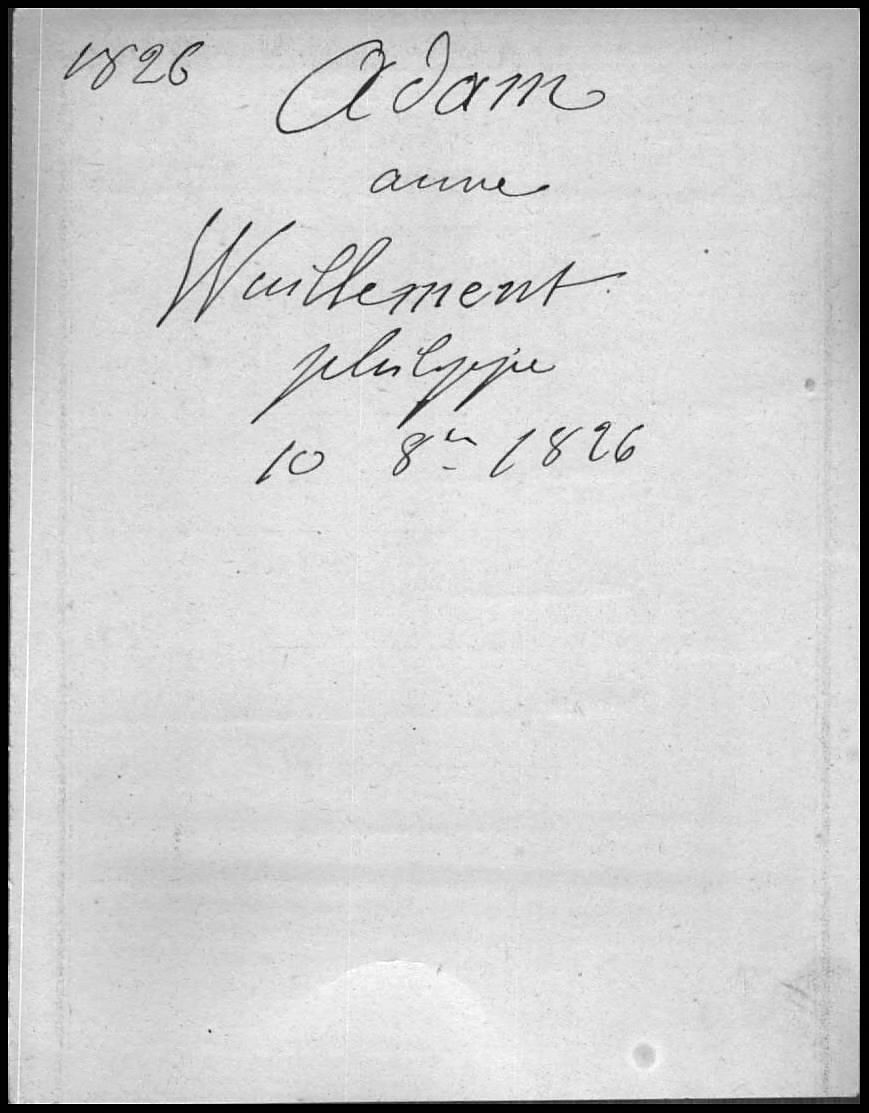 1826 Adam
anne
Wuillement
philippe
10 8re 1826